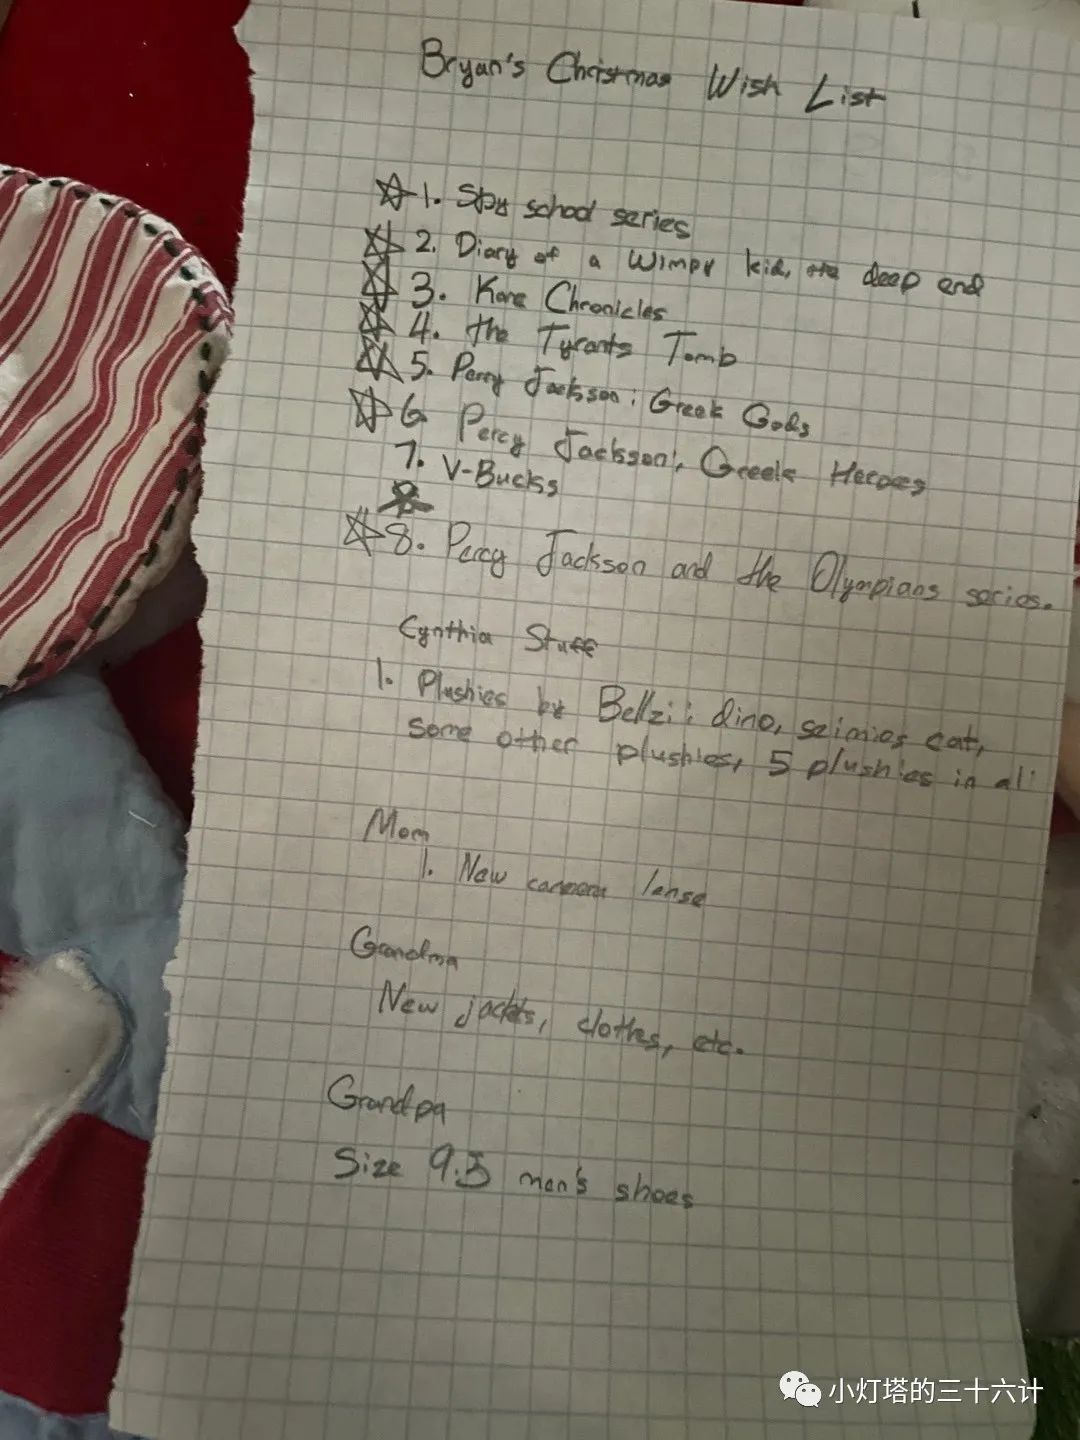 Bryan's Christmas Wish List
1. Spy school series
2. Diary of a Wimpy kid, the deep end
3. Kane Chronicles
4. the Tyrants Tomb
5. Percy Jackson: Greek Gods
6 Percy Jackson: Greek Heroes
7. V-Bucks
8. Percy Jackson and the Olympians series.
Cynthia Stuff
1. Plushies by Bellzi: dino, cat,
some other plushies, 5 plushies in all
Mom
1. New camera lense
Grandma
New jackets, clothes, etc.
Grandpa
Size 9.5 men's shoes
小灯塔的三十六计